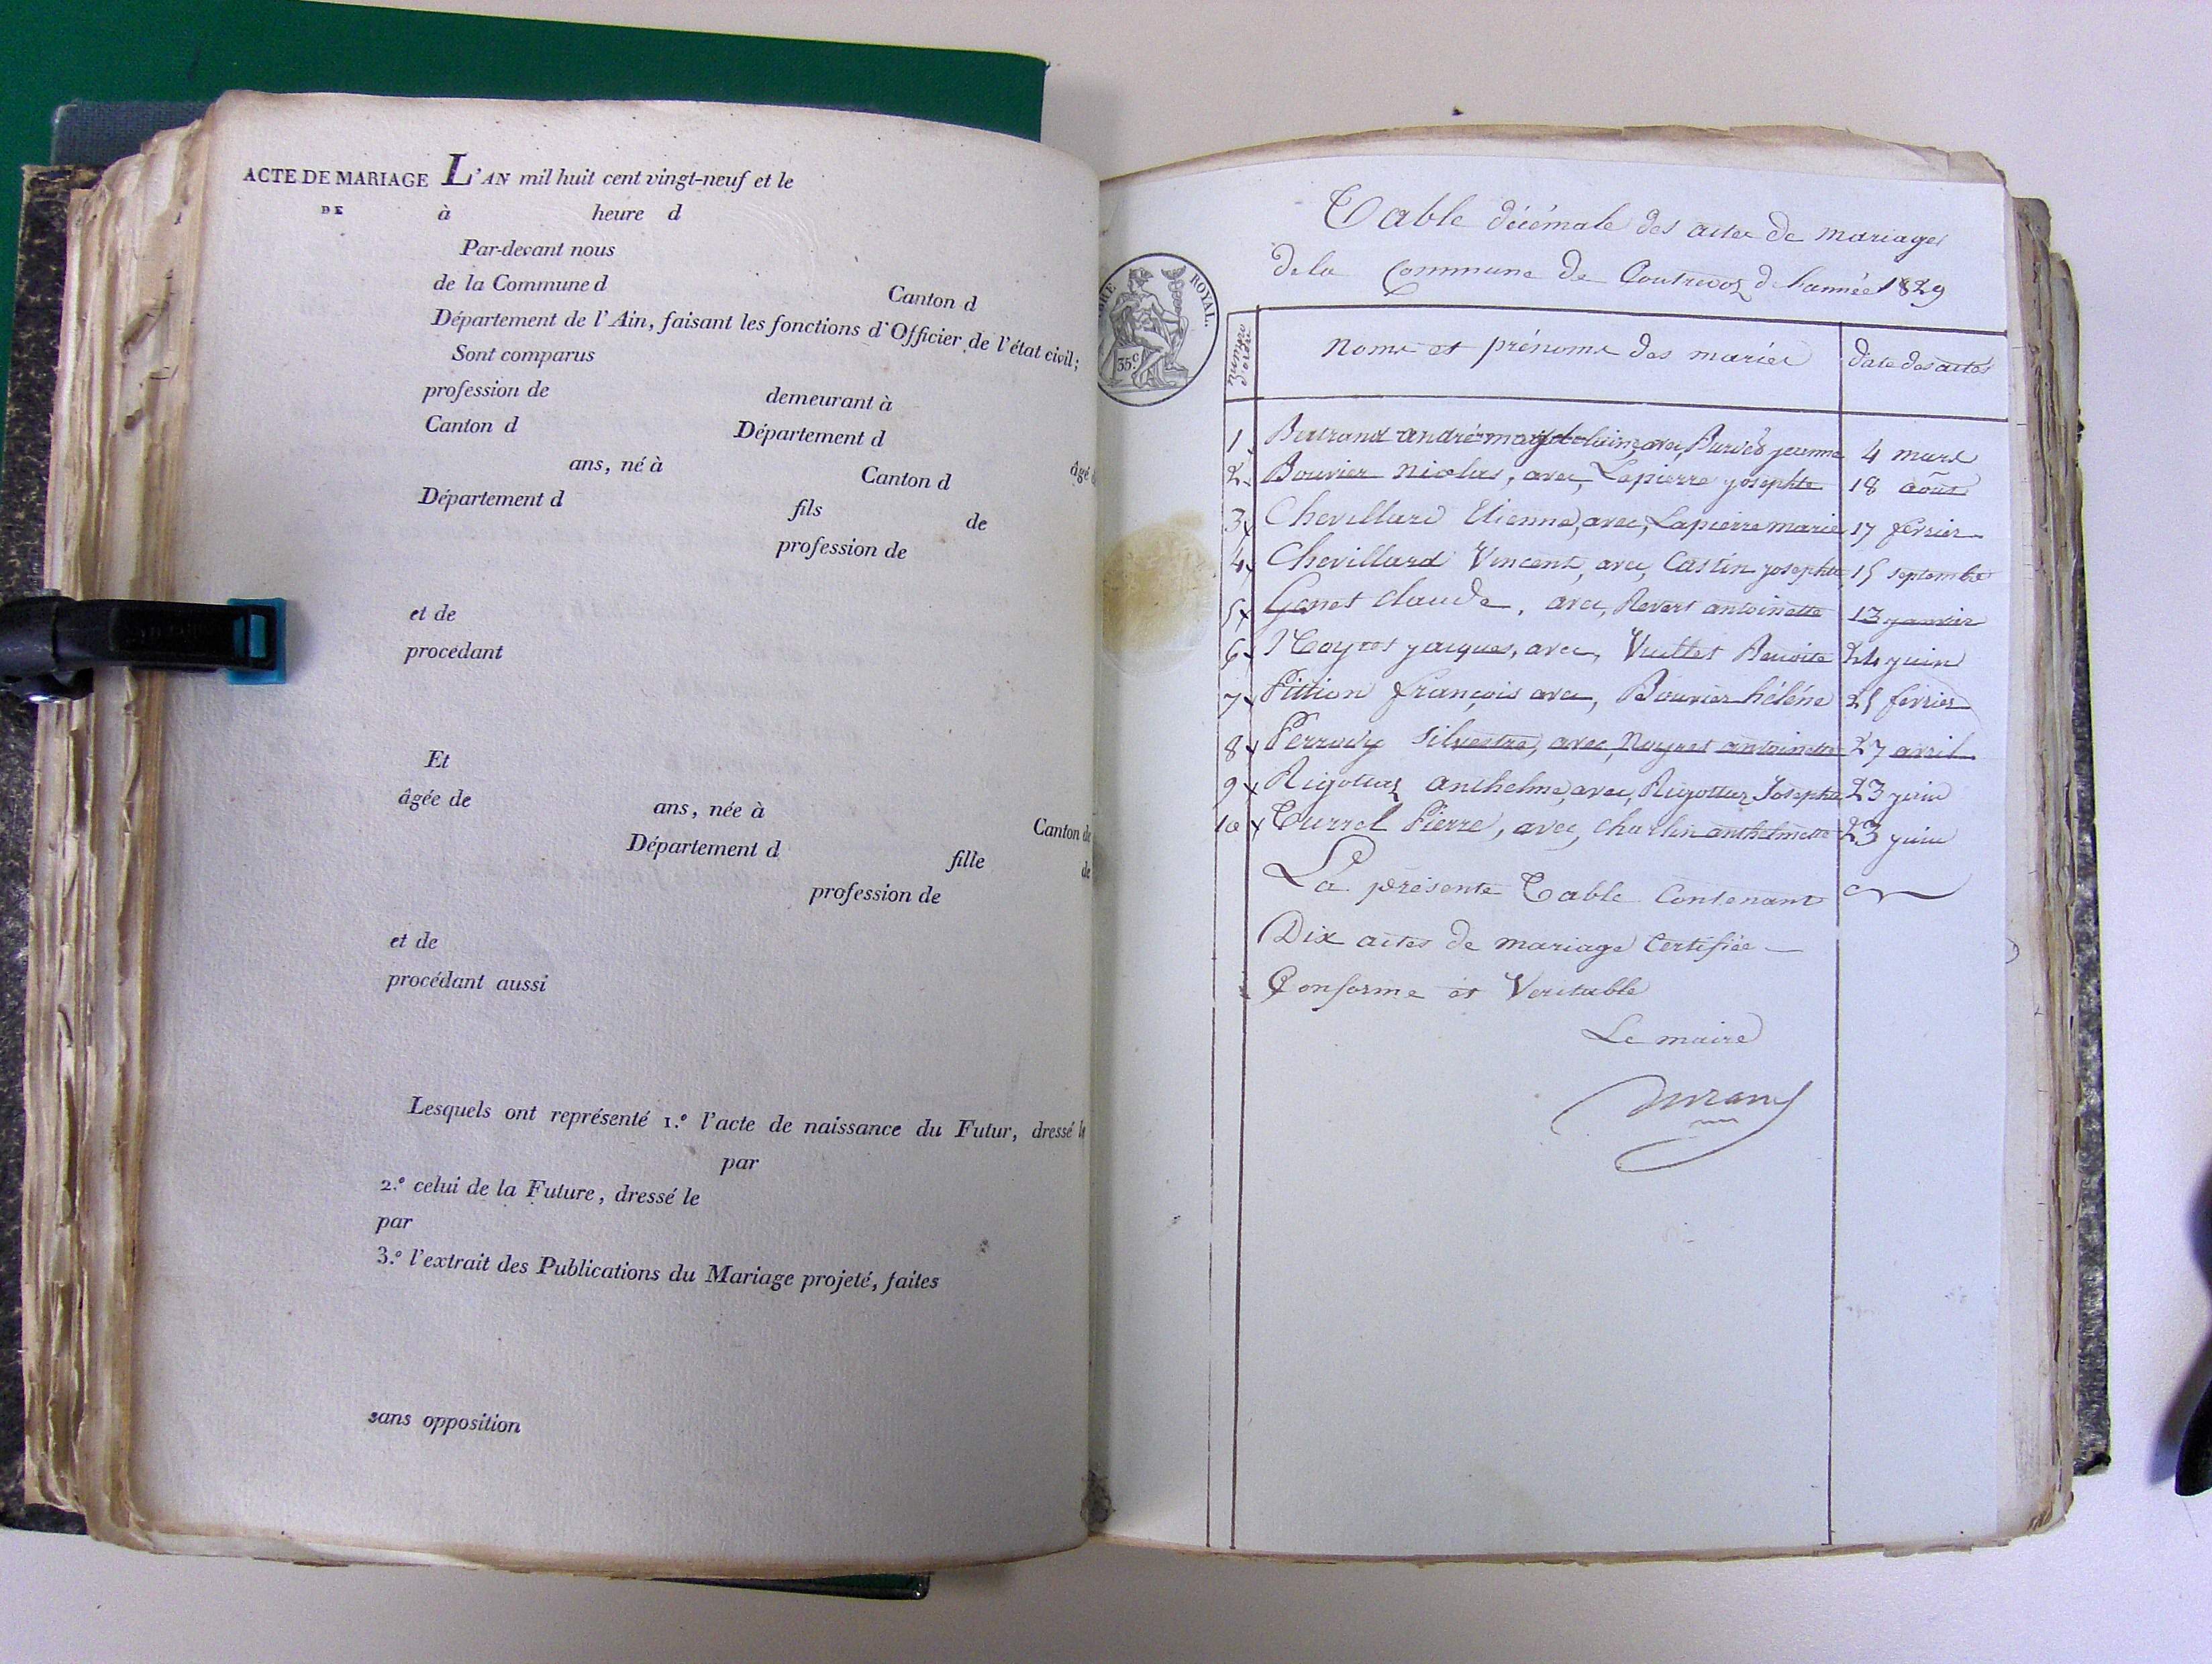 ACTE DE MARIAGE L'AN mil huit cent vingt-neuf et le
DE à heure d
Par-devant nous
de la Commune d Canton d
Département de l'Ain, faisant les fonctions d'Officier de l'état civil;
Sont comparus
profession de demeurant à
Canton d Département d âgé
ans, né à Canton d
Département d fils de
profession de
et de
procédant
Et
âgée de ans, née à Canton de
Département d fille de
profession de
et de
procédant aussi
Lesquels ont représenté 1.º l'acte de naissance du Futur, dressé le
par
2.º celui de la Future, dressé le
par
3.º l'extrait des Publications du Mariage projeté, faites
sans opposition
ROYAL.
35c
Table décémale des actes de mariages
de la Commune de Contrevoz de l'année 1829
numéro d'ordre
noms et prénoms des mariés date des actes
1 Bertrand andré avec jeanne 4 mars
2 Bouvier nicolas, avec, Lapierre josephte 18 août
3x Chevillard Etienne, avec, Lapierre marie 17 février
4x Chevillard Vincent, avec, Castin josephte 15 septembre
5x Genet Claude, avec, Revert antoinette 13 janvier
6x Noyret jacques, avec, Vuillet Benoite 24 juin
7x Pittion françois avec, Bouvier héléne 25 février
8x Perrody Silvestre, avec, Noyret antoinette 27 avril
9x Rigottaz anthelme, avec, Rigottaz Josephte 23 juin
10x Turrel Pierre, avec, Charlin anthelmette 23 juin
La présente Table Contenant
Dix actes de mariage Certifiée
Conforme et Veritable
Le maire
Durand